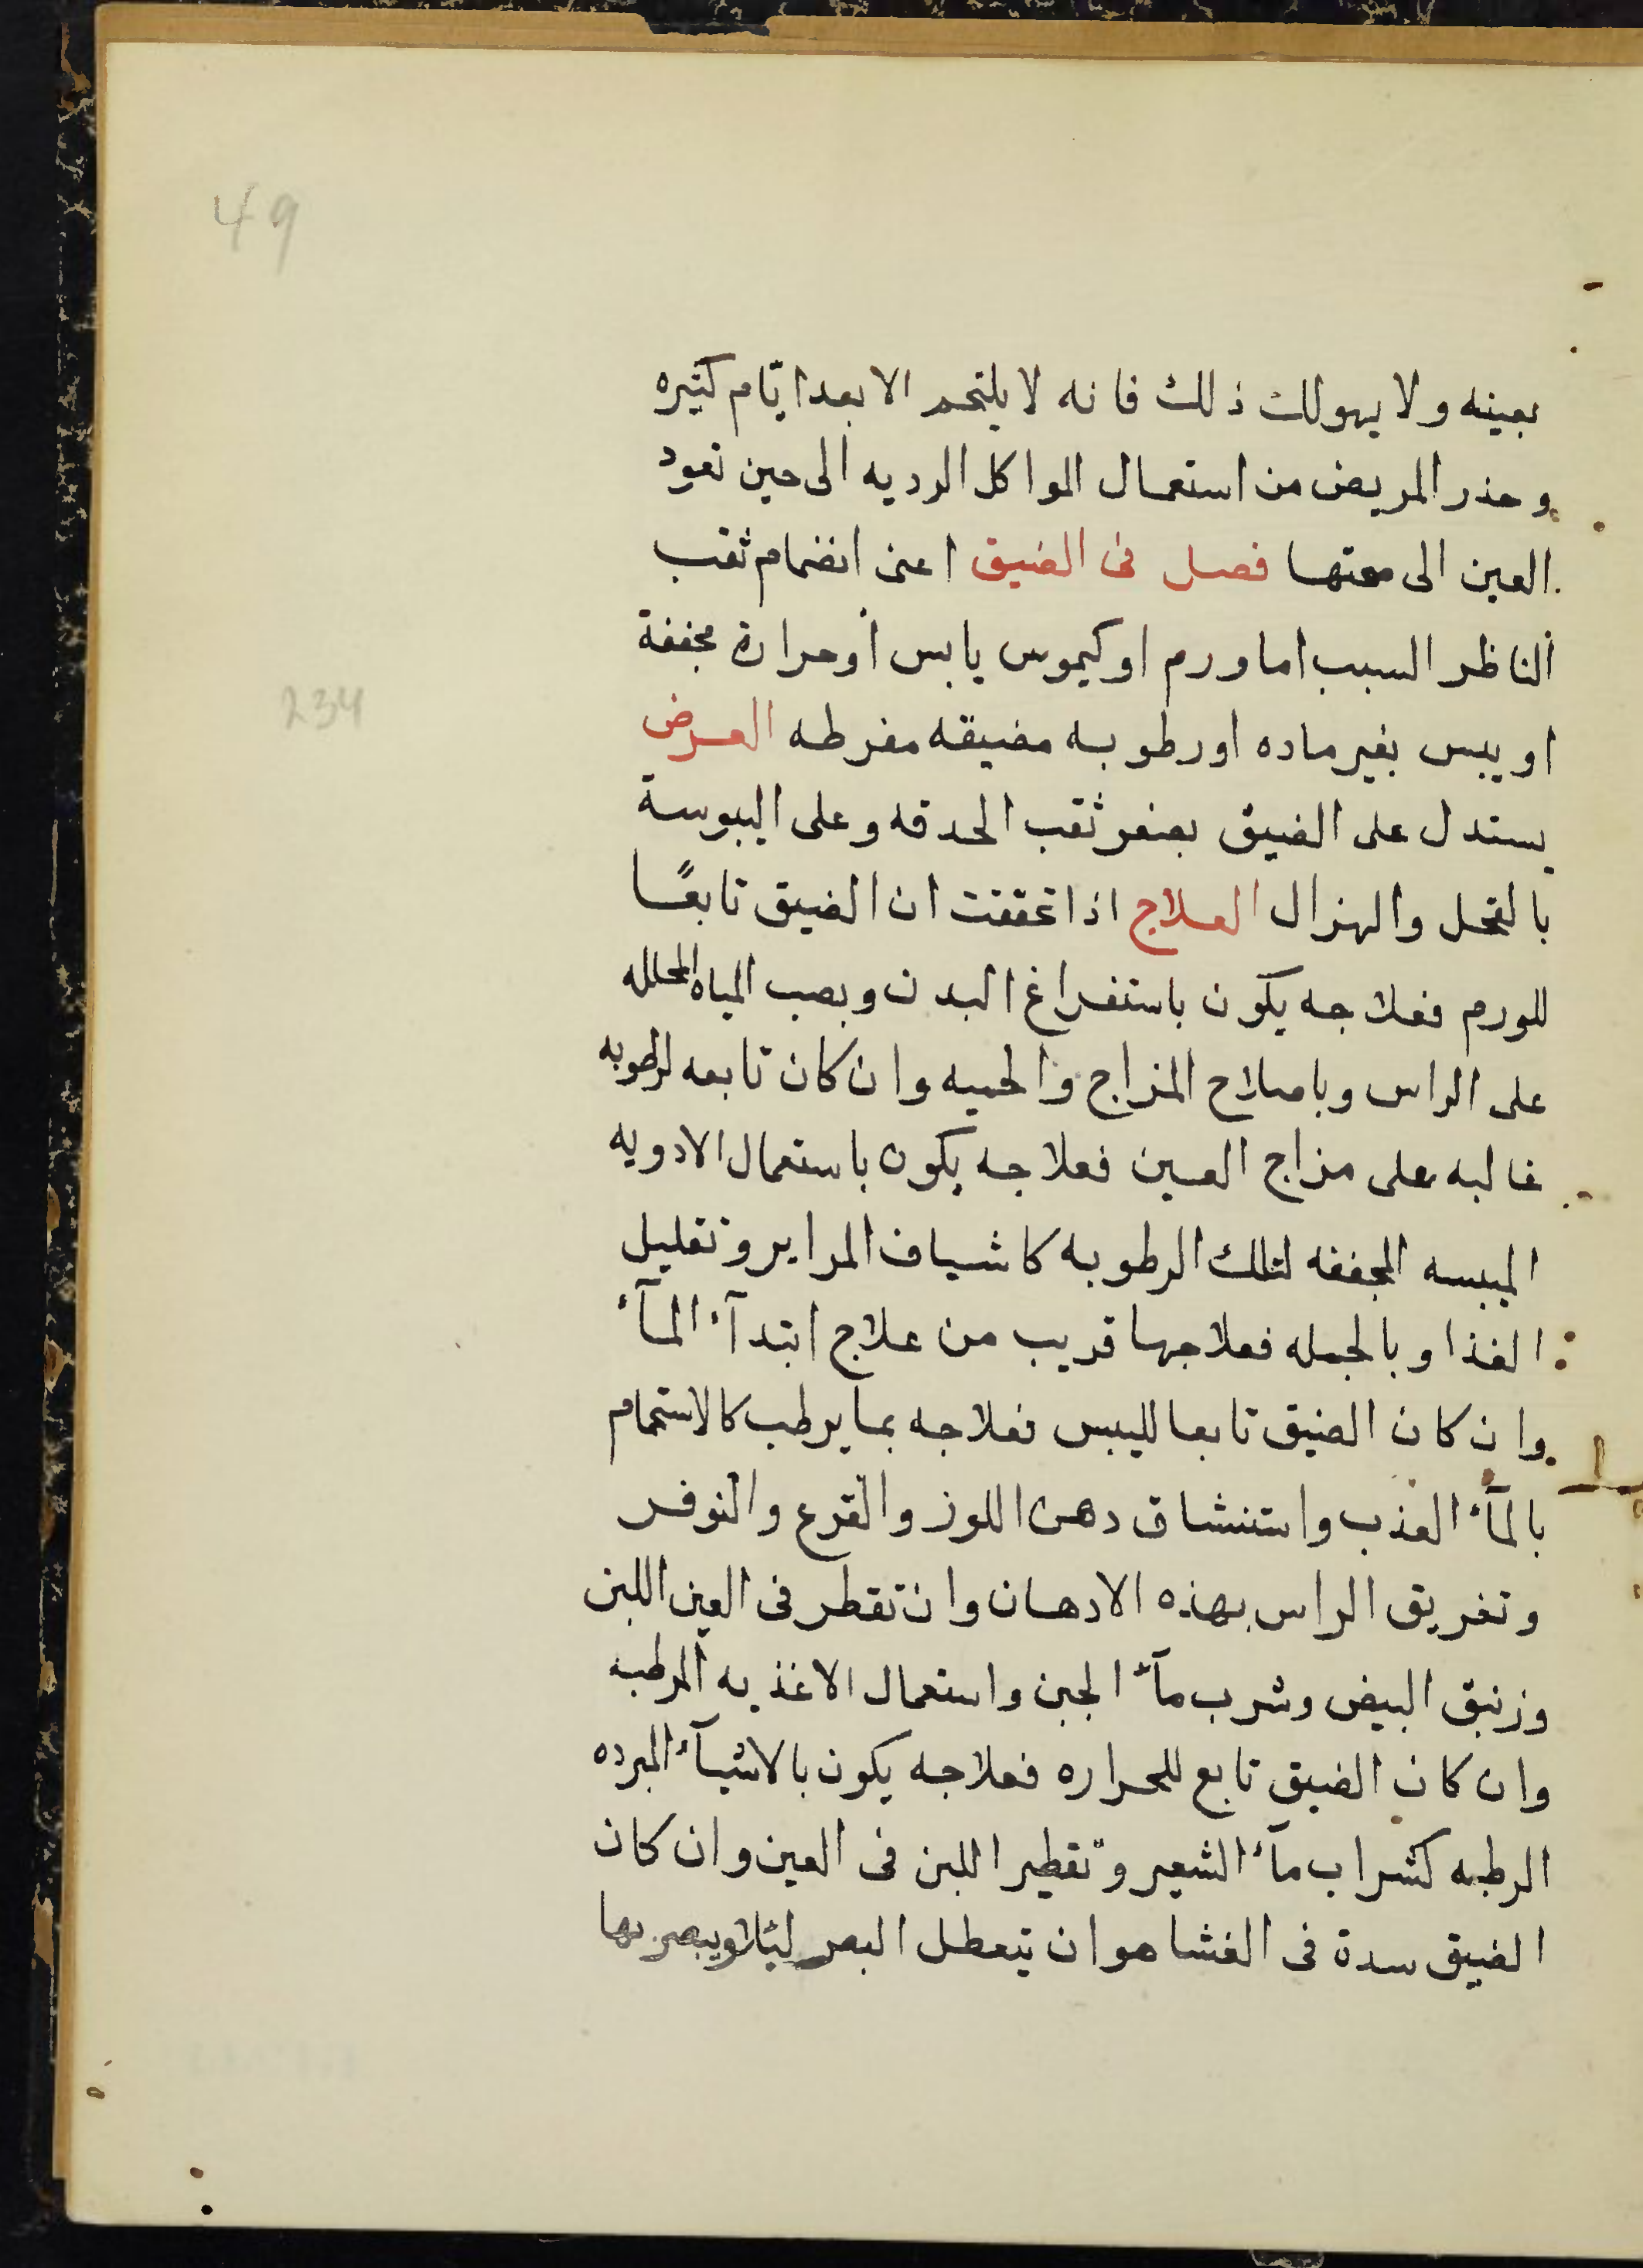 49
بعينه ولا يهولك ذلك فانه لا يلتحم الا بعد ايّام كثيره
وحذر المريض من استعمال المواكل الرديه الى حين تعود
العين الى صحتها فصل فى الضيق اعنى انضمام ثقب
الناظر السبب اما ورم او كيموس يابس أو حرارة مجففة
234
او يبس بغير ماده او رطوبه مضيقه مفرطه العرض
يستدل على الضيق بصغر ثقب الحدقه وعلى اليبوسة
بالقحل والهزال العلاج اذا تحققت ان الضيق تابعًا
للورم فعلاجه يكون باستفراغ البدن وبصب المياه المحلله
على الراس وباصلاح المزاج والحميه وان كان تابعه لرطوبه
غالبه على مزاج العين فعلاجه يكون باستعمال الادويه
الميبسه المجففه لتلك الرطوبه كاشياف المراير وتقليل
الغذا وبالجمله فعلاجها قريب من علاج ابتدآء المآء
وان كان الضيق تابعا لليبس فعلاجه بما يرطب كالاستحمام
بالمآء العذب واستنشاق دهن اللوز والقرع والنوفر
وتغريق الراس بهذه الادهان وان تقطر فى العين اللبن
وزنبق البيض وشرب مآء الجبن واستعمال الاغذيه المرطبه
وان كان الضيق تابع للحراره فعلاجه يكون بالاشيآء المبرده
الرطبه كشراب مآء الشعير وتقطير اللبن فى العين وان كان
الضيق سدة فى الغشا هو ان يتعطل البصر ليلا ويبصر بها